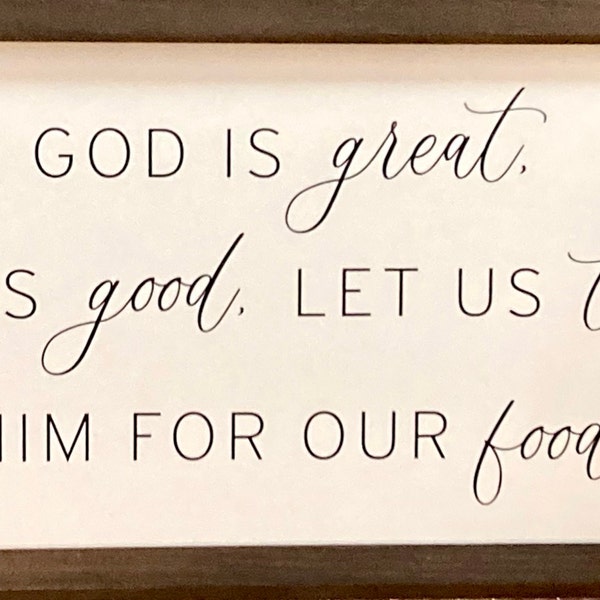 GOD IS great,
S good, LET US t
HIM FOR OUR food